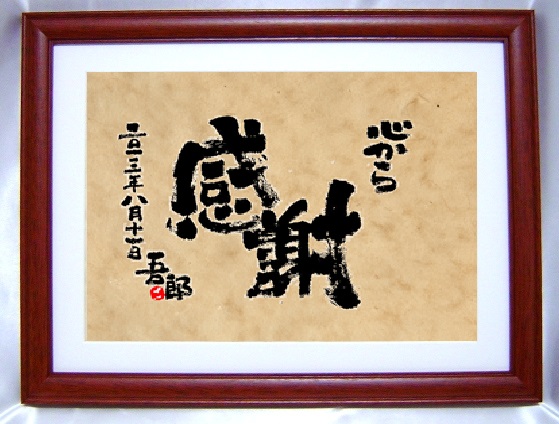 心から
感謝
二〇一三年八月十一日
吾郎